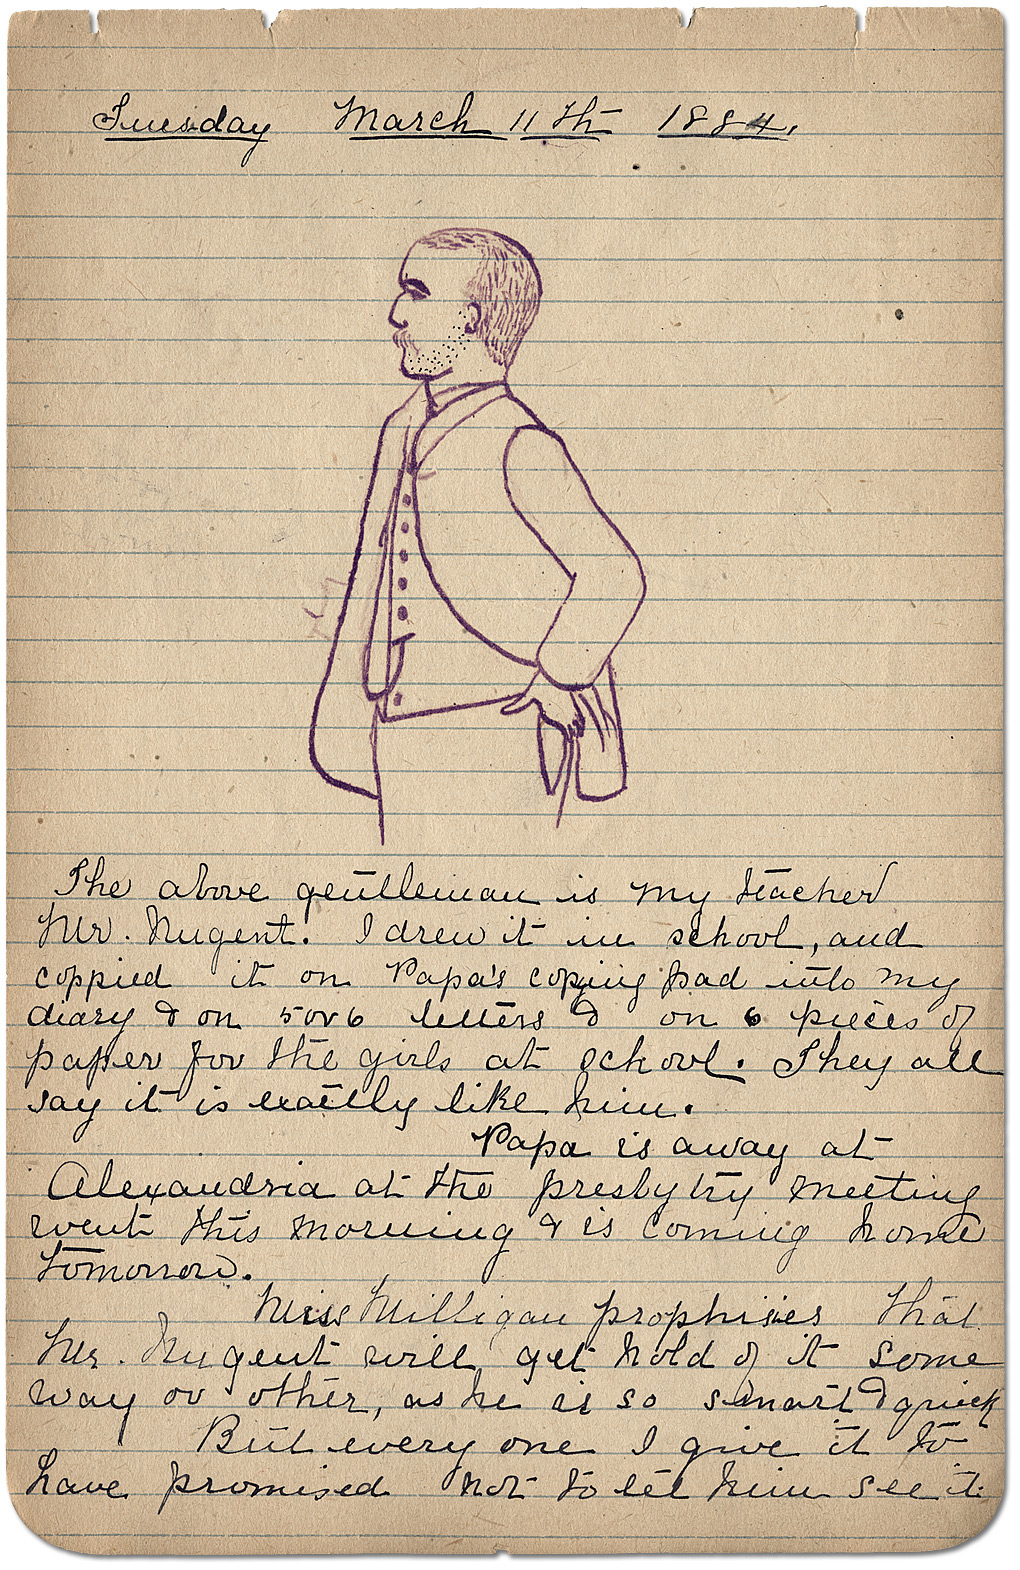 Tuesday March 11th 1884.
The above gentleman is my teacher
Mr. Nugent. I drew it in school, and
coppied it on Papa's coping pad into my
diary & on 5 or 6 letters & on 6 pieces of
paper for the girls at school. They all
say it is exactly like him.
Papa is away at
Alexandria at the presbytry meeting
went this morning & is coming home
tomorrow.
Miss Milligan prophisies that
Mr. Nugent will get hold of it some
way or other, as he is so smart & quick
But every one I give it to
have promised not to let him see it.